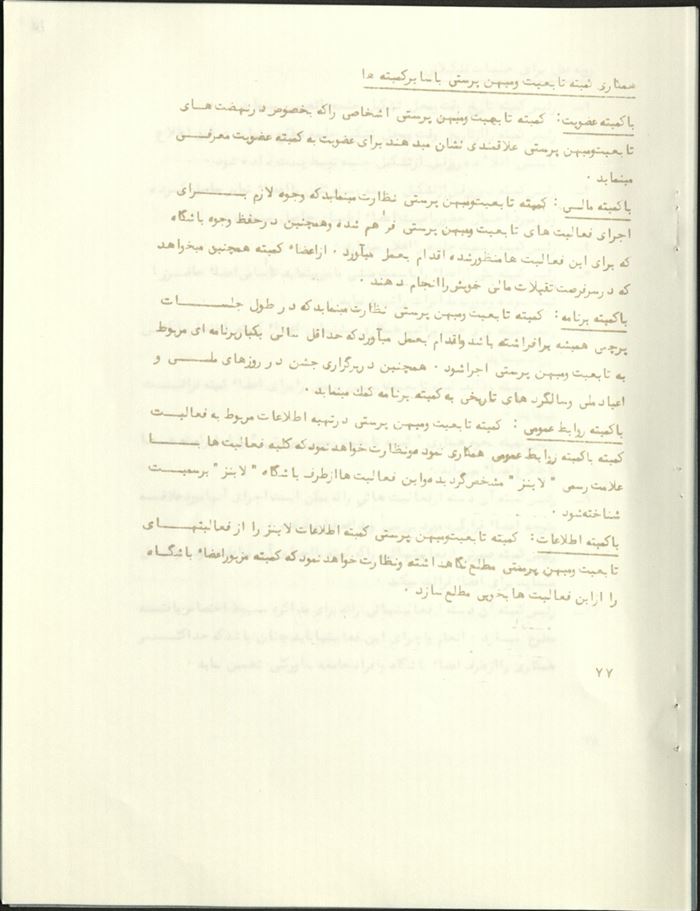 همکاری کمیته تابعیت ومیهن پرستی باسایرکمیته ها
باکمیته عضویت: کمیته تابعیت ومیهن پرستی اشخاصی راکه بخصوص درنهضت های
تابعیت ومیهن پرستی علاقمندی نشان میدهند برای عضویت به کمیته عضویت معرفی
مینماید.
باکمیته مالی: کمیته تابعیت ومیهن پرستی نظارت مینماید که وجوه لازم برای
اجرای فعالیت های تابعیت ومیهن پرستی فراهم شده وهمچنین درحفظ وجوه باشگاه
که برای این فعالیت ها منظورشده اقدام بعمل میآورد. ازاعضاء کمیته همچنین میخواهد
که درسرفرصت تقبلات مالی خویش راانجام دهند.
باکمیته برنامه: کمیته تابعیت ومیهن پرستی نظارت مینماید که در طول جلسات
پرچم همیشه برافراشته باشد واقدام بعمل میآورد که حداقل سالی یکبار برنامه ای مربوط
به تابعیت ومیهن پرستی اجراشود. همچنین دربرگزاری جشن در روزهای ملی و
اعیاد ملی وسالگرد های تاریخی به کمیته برنامه کمک مینماید.
باکمیته روابط عمومی: کمیته تابعیت ومیهن پرستی درتهیه اطلاعات مربوط به فعالیت
کمیته باکمیته روابط عمومی همکاری نموده ونظارت خواهد نمود که کلیه فعالیت ها با
علامت رسمی " لاینز " مشخص گردیده واین فعالیت ها ازطرف باشگاه " لاینز " برسمیت
شناخته شود.
باکمیته اطلاعات: کمیته تابعیت ومیهن پرستی کمیته اطلاعات لاینز را از فعالیتهای
تابعیت ومیهن پرستی مطلع نگاهداشته ونظارت خواهد نمود که کمیته مزبور اعضاء باشگاه
را ازاین فعالیت ها بخوبی مطلع سازد.
۷۷